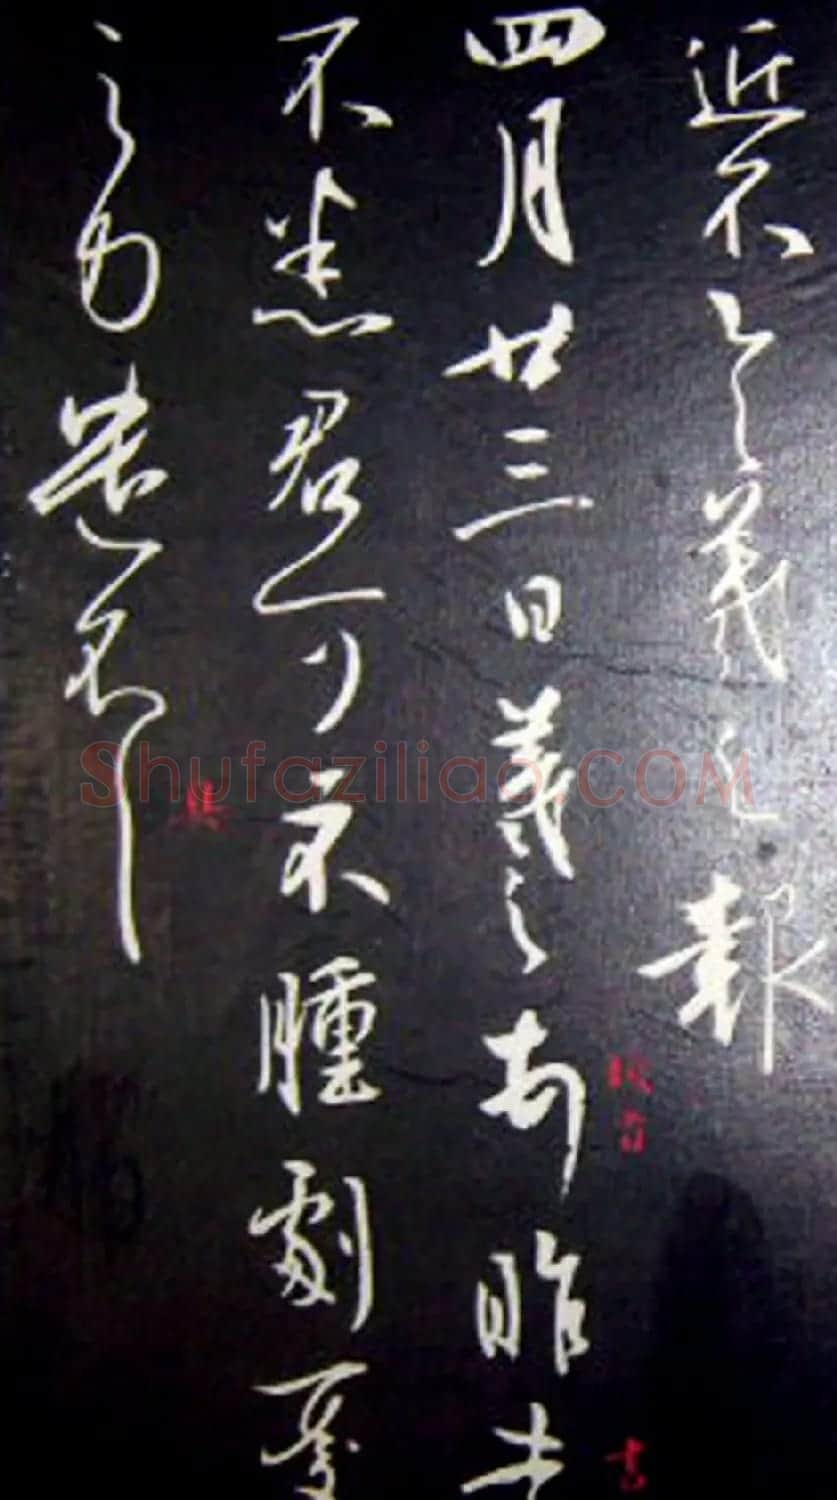 近不 羲之報
四月廿三日羲之頓首昨書
不悉君可不腫劇憂
之力遣不具
頓首
書
具
Shufaziliao.COM